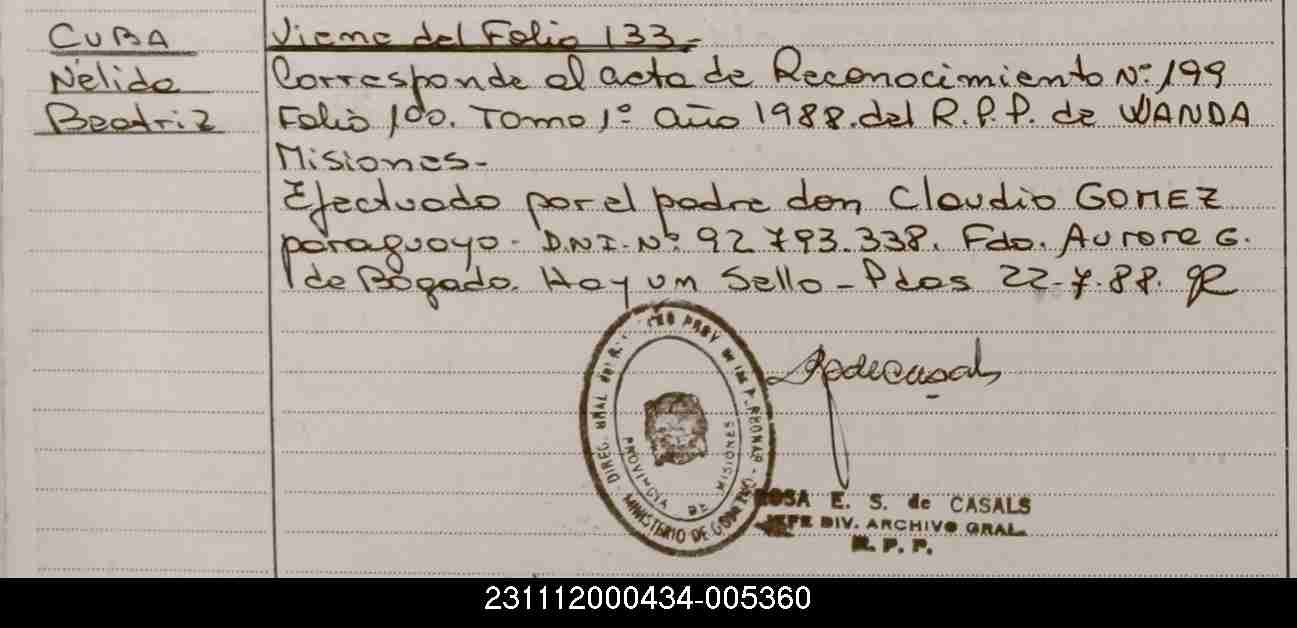 CUBA
Nélida
Beatriz
Viene del Folio 133.-
Corresponde al acta de Reconocimiento Nº 199
Folio 100. Tomo 1º año 1988. del R.P.P. de WANDA
Misiones-
Efectuado por el padre don Claudio GOMEZ
paraguayo- D.N.I. Nº 92.793.338. Fdo. Aurora G.
de Bogado. Hay un Sello - Pdas 22-7-88.
DIREC. GRAL del R. PROV de las PERSONAS
MINISTERIO DE GOBIERNO
PROVINCIA DE MISIONES
ROSA E. S. de CASALS
JEFE DIV. ARCHIVO GRAL.
R. P. P.
231112000434-005360